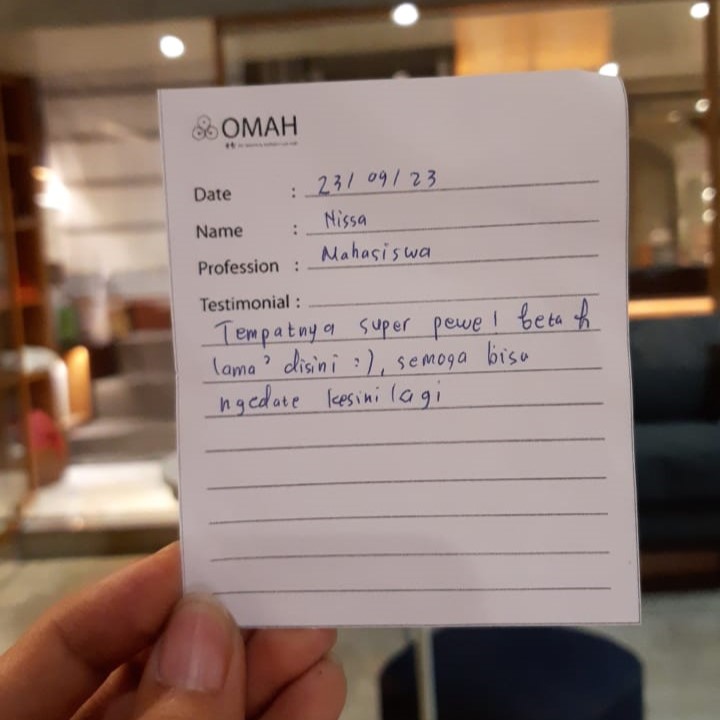 OMAH
Date : 23/09/23
Name : Nissa
Profession : Mahasiswa
Testimonial :
Tempatnya super pewe! betah
lama² disini :), semoga bisa
ngedate kesini lagi